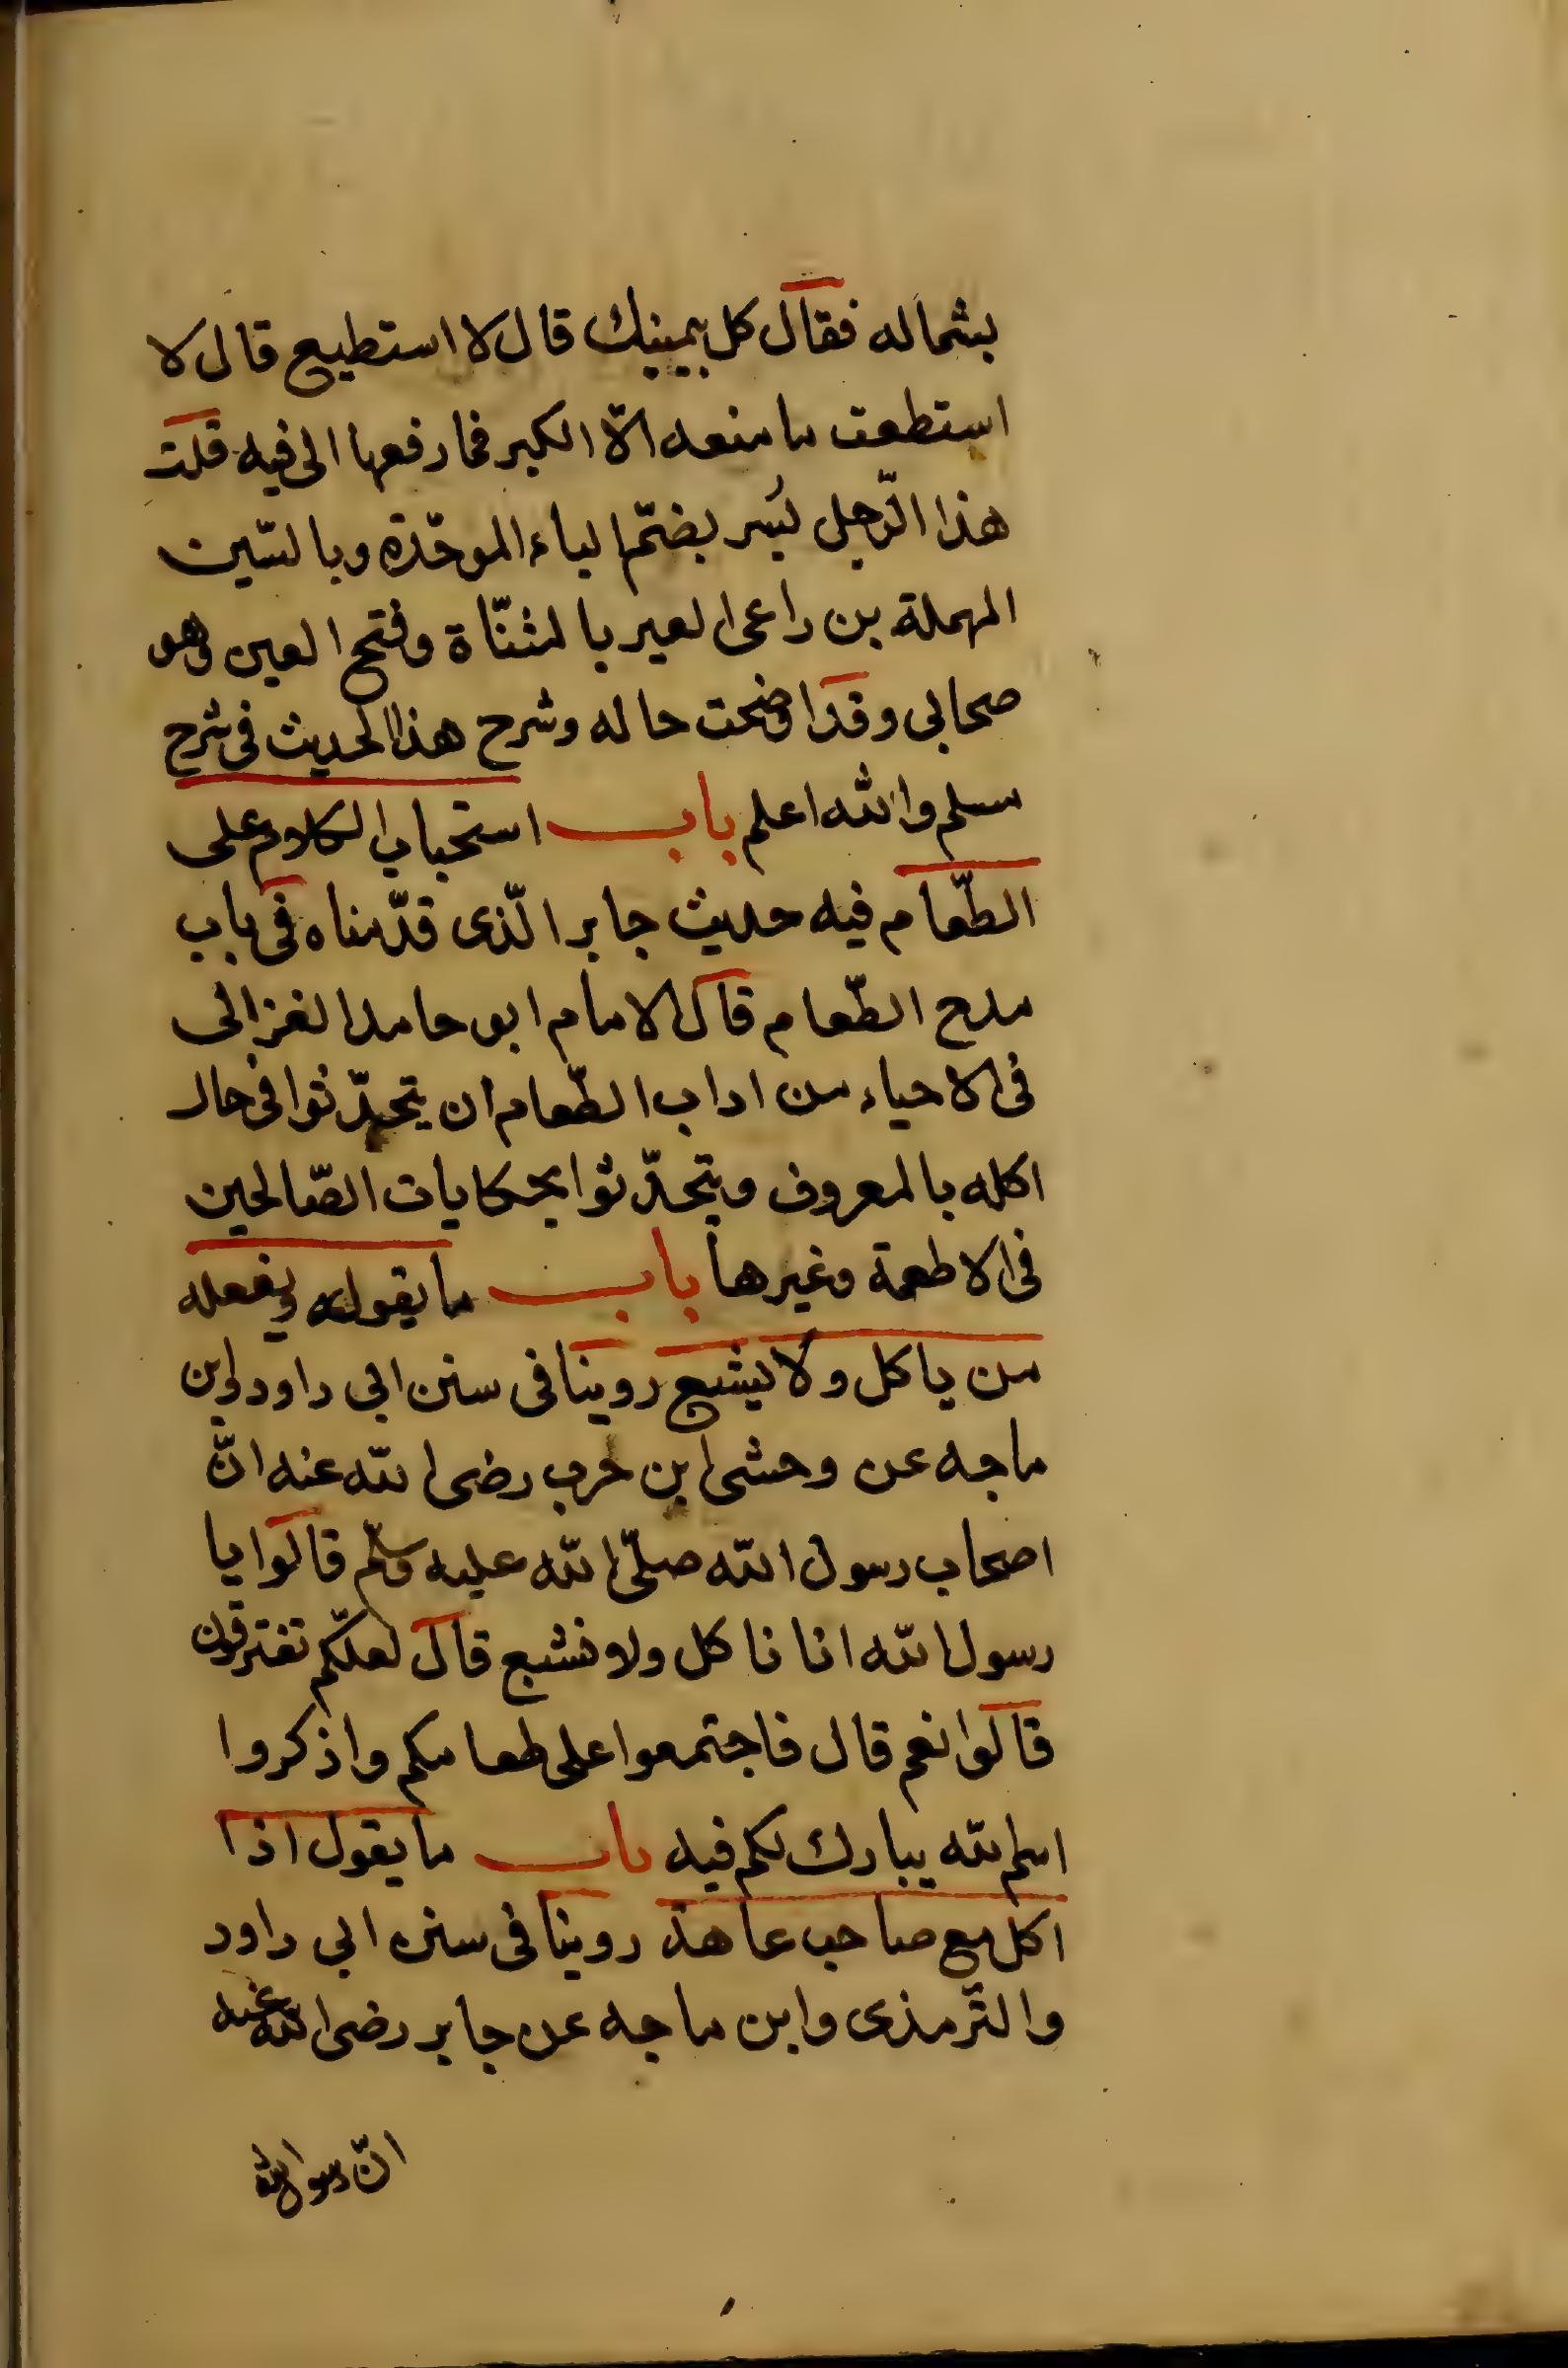 بشماله فقال كل بيمينك قال لا استطيع قال لا
استطعت ما منعه الّا الكبر فما رفعها الى فيه قلت
هذا الرّجل بُسر بضمّ الباء الموحّدة وبالسّين
المهملة بن راعى العير بالمثنّاة وفتح العين وهو
صحابى وقد اوضحت حاله وشرح هذا الحديث فى شرح
مسلم والله اعلم باب استحباب الكلام على
الطّعام فيه حديث جابر الّذى قدّمناه فى باب
مدح الطّعام قال الامام ابو حامد الغزالى
فى الاحياء من اداب الطّعام ان يتحدّثوا فى حال
اكله بالمعروف ويتحدّثوا بحكايات الصّالحين
فى الاطعمة وغيرها باب ما يقوله ويفعله
من ياكل ولا يشبع روينا فى سنن ابى داود وابن
ماجه عن وحشى ابن حرب رضى الله عنه انّ
اصحاب رسول الله صلّى الله عليه وسلّم قالوا يا
رسول الله انا ناكل ولا نشبع قال لعلّكم تفترقون
قالوا نعم قال فاجتمعوا على طعامكم واذكروا
اسم الله يبارك لكم فيه باب ما يقول اذا
اكل مع صاحب عاهة روينا فى سنن ابى داود
والتّرمذى وابن ماجه عن جابر رضى الله عنه
انّ رسول الله